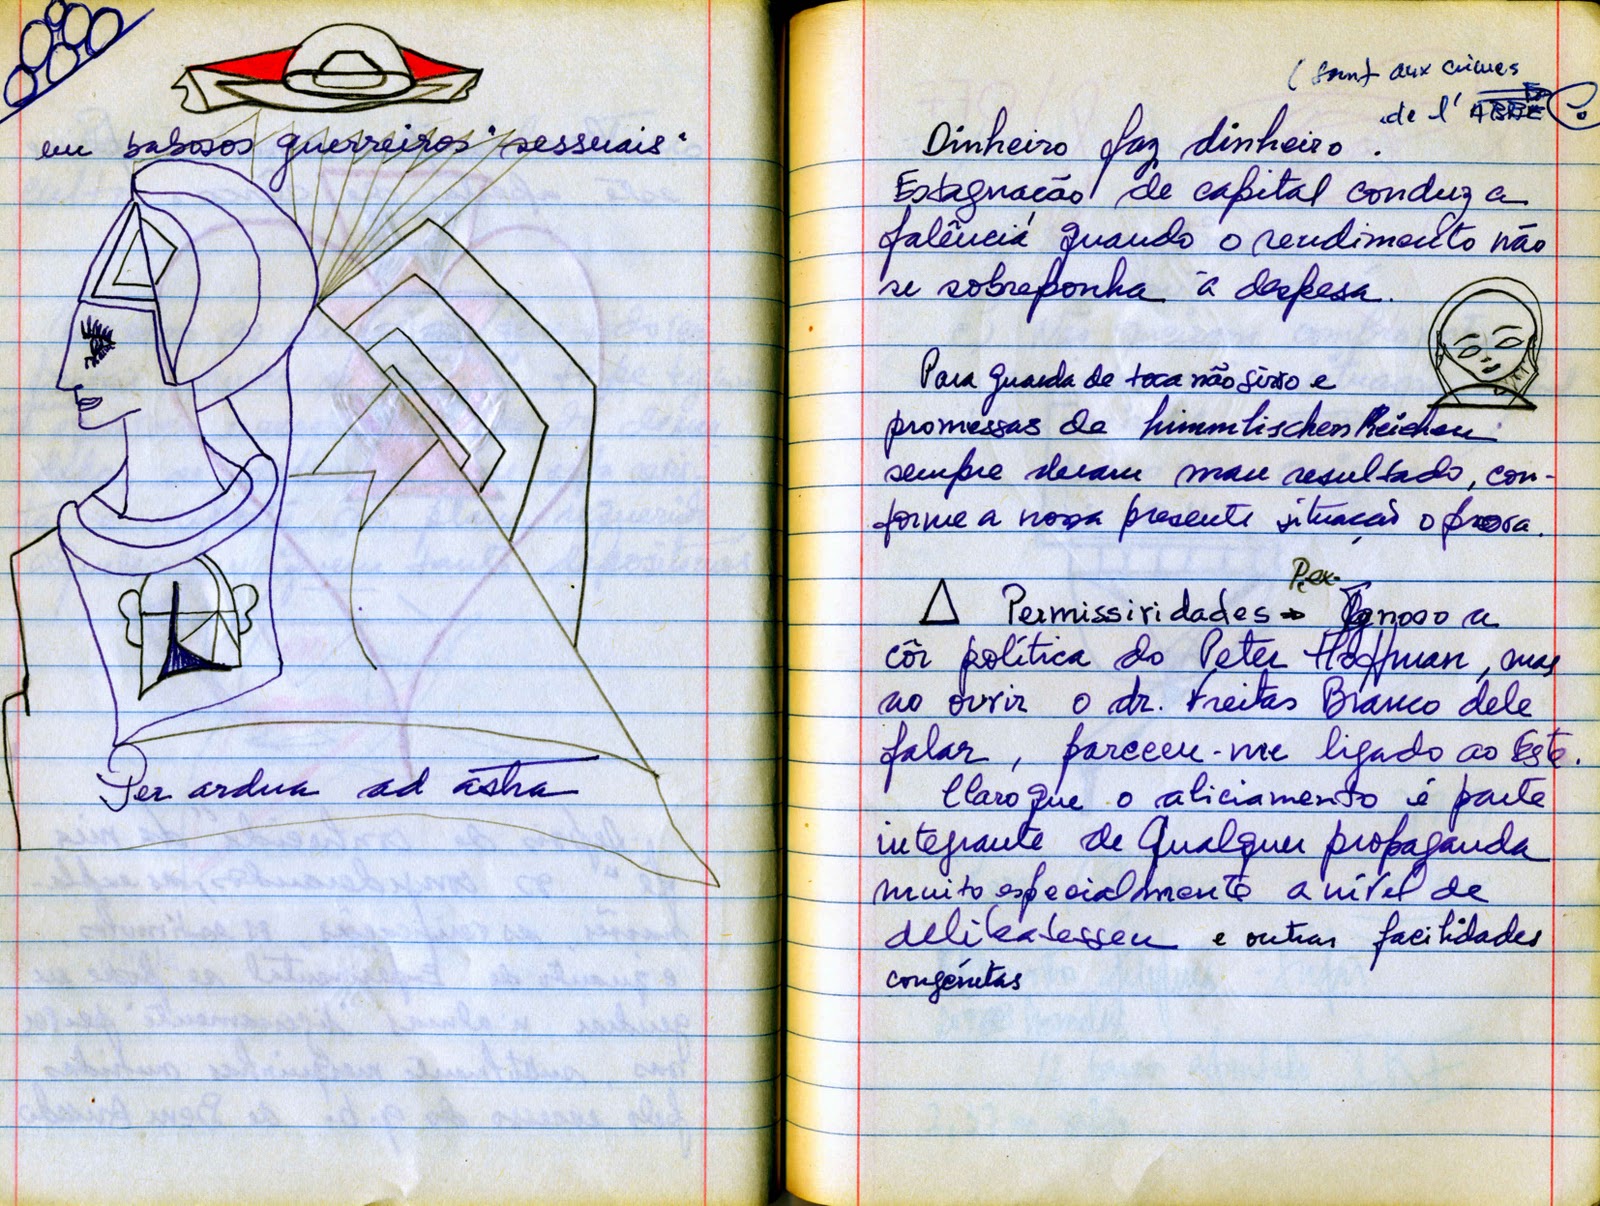 em babosos guerreiros "sessuais"
Per ardua ad astra
aux crimes
de l'
Dinheiro faz dinheiro.
Estagnação de capital conduz a
falência quando o rendimento não
se sobreponha à despesa.
Para guarda de toca não sirvo e
promessas de himmlischen Reichen
sempre deram mau resultado, con-
forme a nossa presente situação o prova.
Δ Permissividades → P. ex. Ignoro a
côr política do Peter Hoffman, mas
ao ouvir o dr. Freitas Branco dele
falar, pareceu-me ligado ao Este.
Claro que o aliciamento é parte
integrante de Qualquer propaganda
muito especialmente a nível de
delikatessen e outras facilidades
congénitas